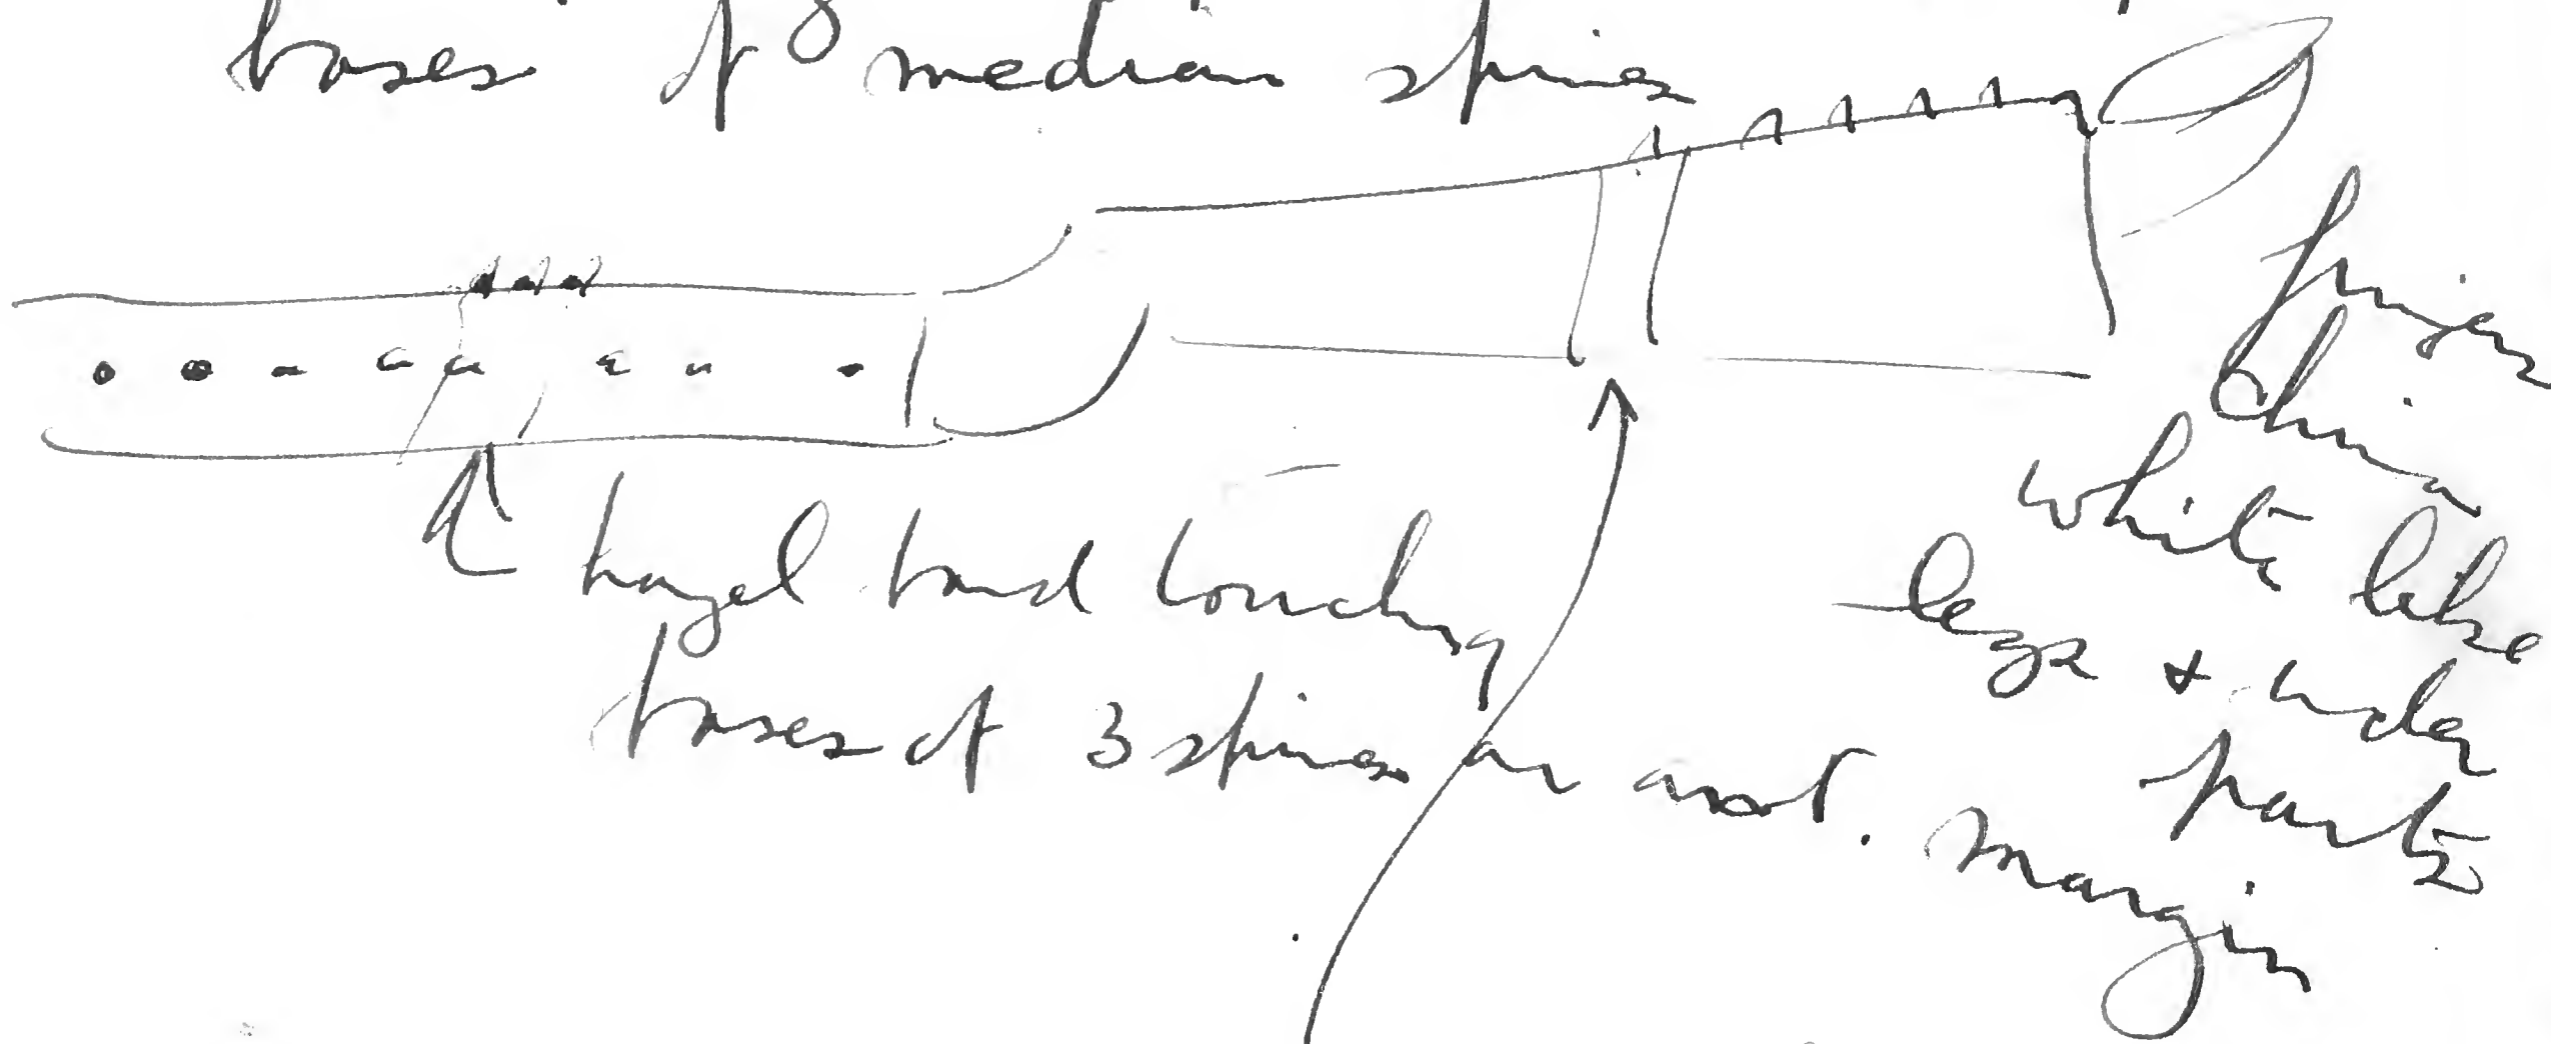 bases of median spines
hazel band touching
bases of 3 spines on ant. margin
fingers
china
white like
legs & under
parts